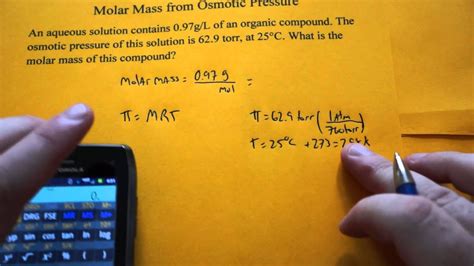 Molar Mass from Osmotic Pressure
An aqueous solution contains 0.97g/L of an organic compound. The
osmotic pressure of this solution is 62.9 torr, at 25°C. What is the
molar mass of this compound?
MOLAR MASS = 0.97 g / mol =
π = MRT
π = 62.9 torr (1 Atm / 760 torr)
T = 25°C + 273 = 298 K
MOTOROLA
0.
DRG FSE MR MS M+
sin cos tan ln log